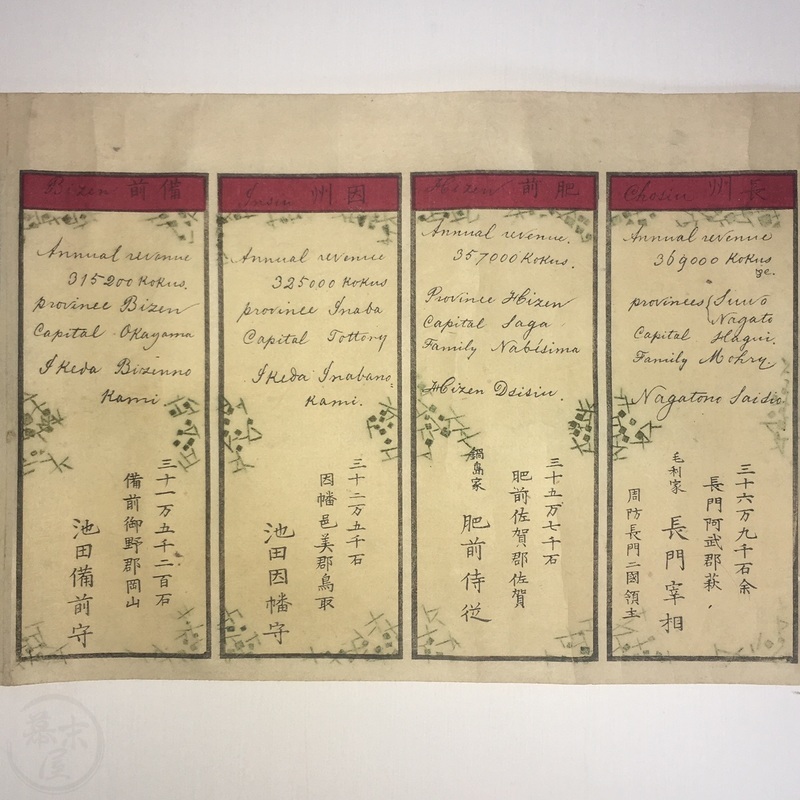 Bizen 備前
Annual revenue
315200 Kokus.
province Bizen
Capital Okayama
Ikeda Bizenno
Kami
三十一万五千二百石
備前御野郡岡山
池田備前守
Insiu 因州
Annual revenue
325000 Kokus
province Inaba
Capital Tottory
Ikeda Inabano=
Kami.
三十二万五千石
因幡邑美郡鳥取
池田因幡守
Hizen 肥前
Annual revenue.
357000 Kokus.
Province Hizen
Capital Saga
Family Nabésima
Hizen Dsisiu.
三十五万七千石
肥前佐賀郡佐賀
鍋島家
肥前侍従
Chosiu 長州
Annual revenue
369000 Kokus
provinces { Suwo
Nagato
Capital Hagui.
Family Mohry
Nagatono Saisio
三十六万九千石余
長門阿武郡萩
毛利家
長門宰相
周防長門二國領主
幕末屋